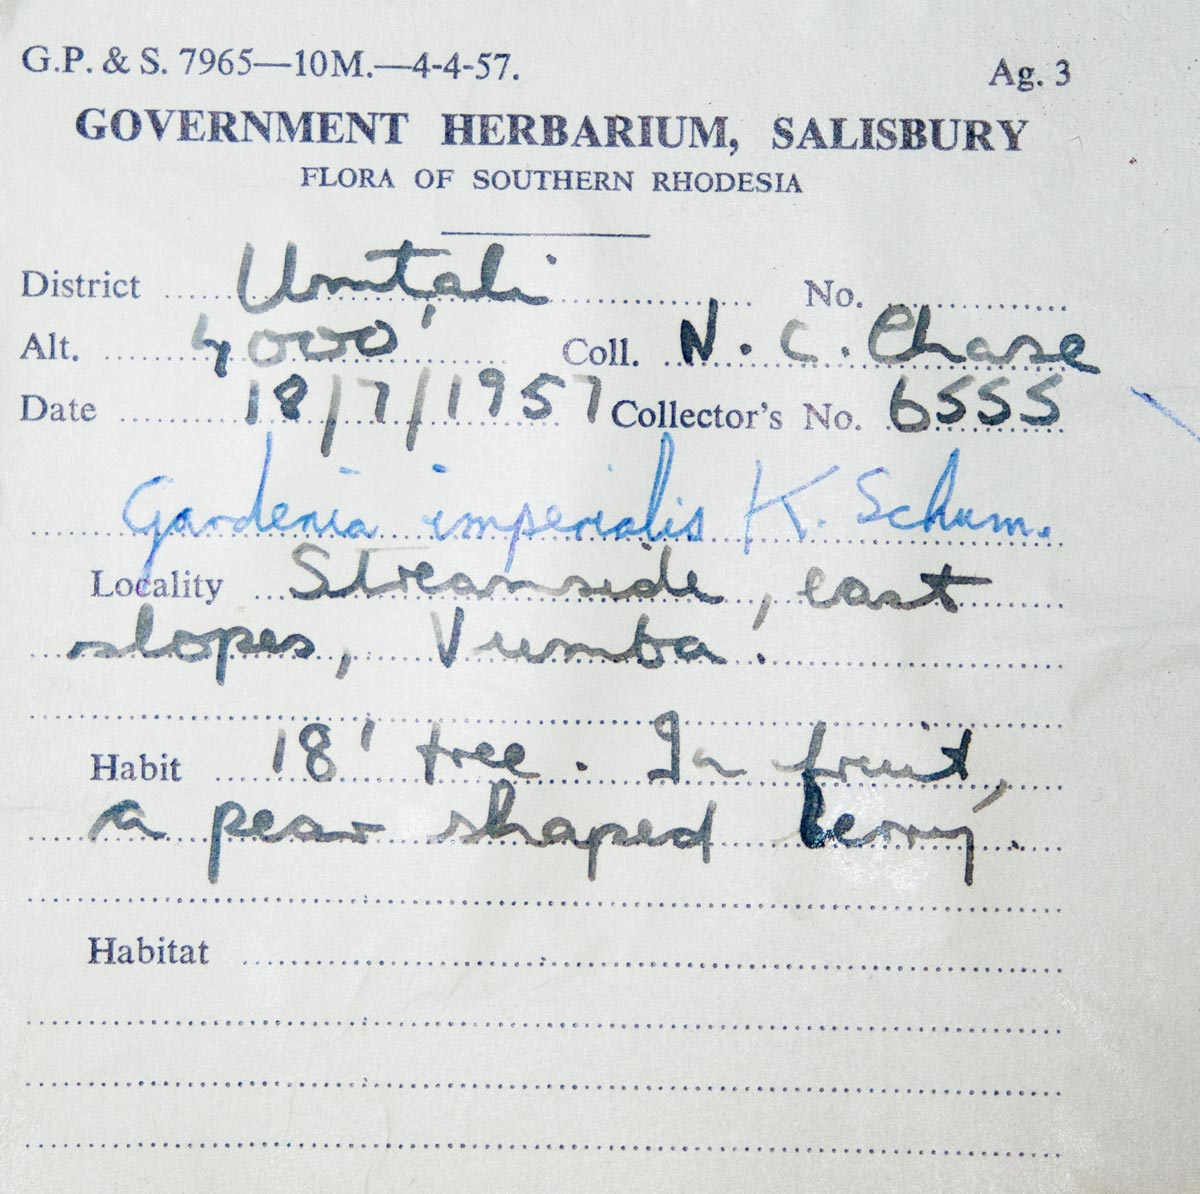 G.P. & S. 7965—10M.—4-4-57. Ag. 3
GOVERNMENT HERBARIUM, SALISBURY
FLORA OF SOUTHERN RHODESIA
District Umtali No.
Alt. 4000' Coll. N. C. Chase
Date 18/7/1957 Collector's No. 6555
Gardenia imperialis K. Schum.
Locality Streamside, east
slopes, Vumba.
Habit 18' tree. In fruit,
a pear shaped berry.
Habitat